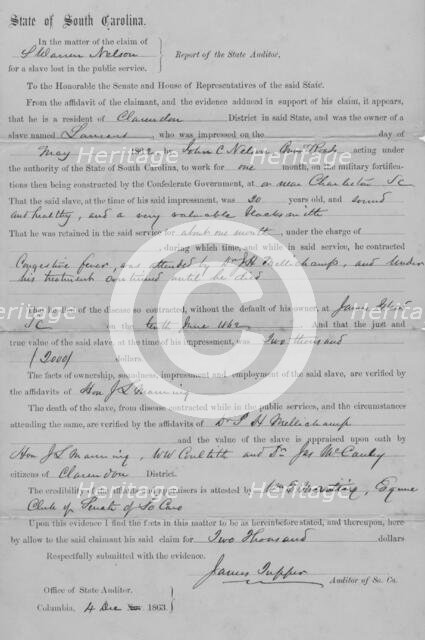 State of South Carolina.
In the matter of the claim of
S Warren Nelson
for a slave lost in the public service.
Report of the State Auditor.
To the Honorable the Senate and House of Representatives of the said State.
From the affidavit of the claimant, and the evidence adduced in support of his claim, it appears,
that he is a resident of Clarendon District in said State, and was the owner of a
slave named , who was impressed on the day of
May 1862 by John C Nelson, Comr Roads acting under
the authority of the State of South Carolina, to work for one month, on the military fortifications
then being constructed by the Confederate Government, at or near Charleston SC
That the said slave, at the time of his said impressment, was 20 years old, and sound
and healthy, and a very valuable blacksmith
That he was retained in the said service for about one month, under the charge of
, during which time, and while in said service, he contracted
Congestive fever, was attended by Dr H Mellichamp, and under
his treatment continued until he died
That he died of the disease so contracted, without the default of his owner, at James Island
SC on the tenth June 1862 and that the just and
true value of the said slave, at the time of his impressment, was Two thousand
(2000) dollars.
The facts of ownership, soundness, impressment and employment of the said slave, are verified by
the affidavits of Hon J L Manning
The death of the slave, from disease contracted while in the public services, and the circumstances
attending the same, are verified by the affidavits of Dr H Mellichamp
and the value of the slave is appraised upon oath by
Hon J L Manning, WW and Dr Jas McCauley
citizens of Clarendon District.
The credibility of the affiants and appraisers is attested by Wm E Martin, Esquire
Clerk of Senate of So Caro
Upon this evidence I find the facts in this matter to be as hereinbefore stated, and thereupon, hereby
allow to the said claimant his said claim for Two Thousand dollars
Respectfully submitted with the evidence.
James Tupper
Auditor of So. Ca.
Office of State Auditor.
Columbia, 4 Dec 1863.
heritage-images
Heritage Images